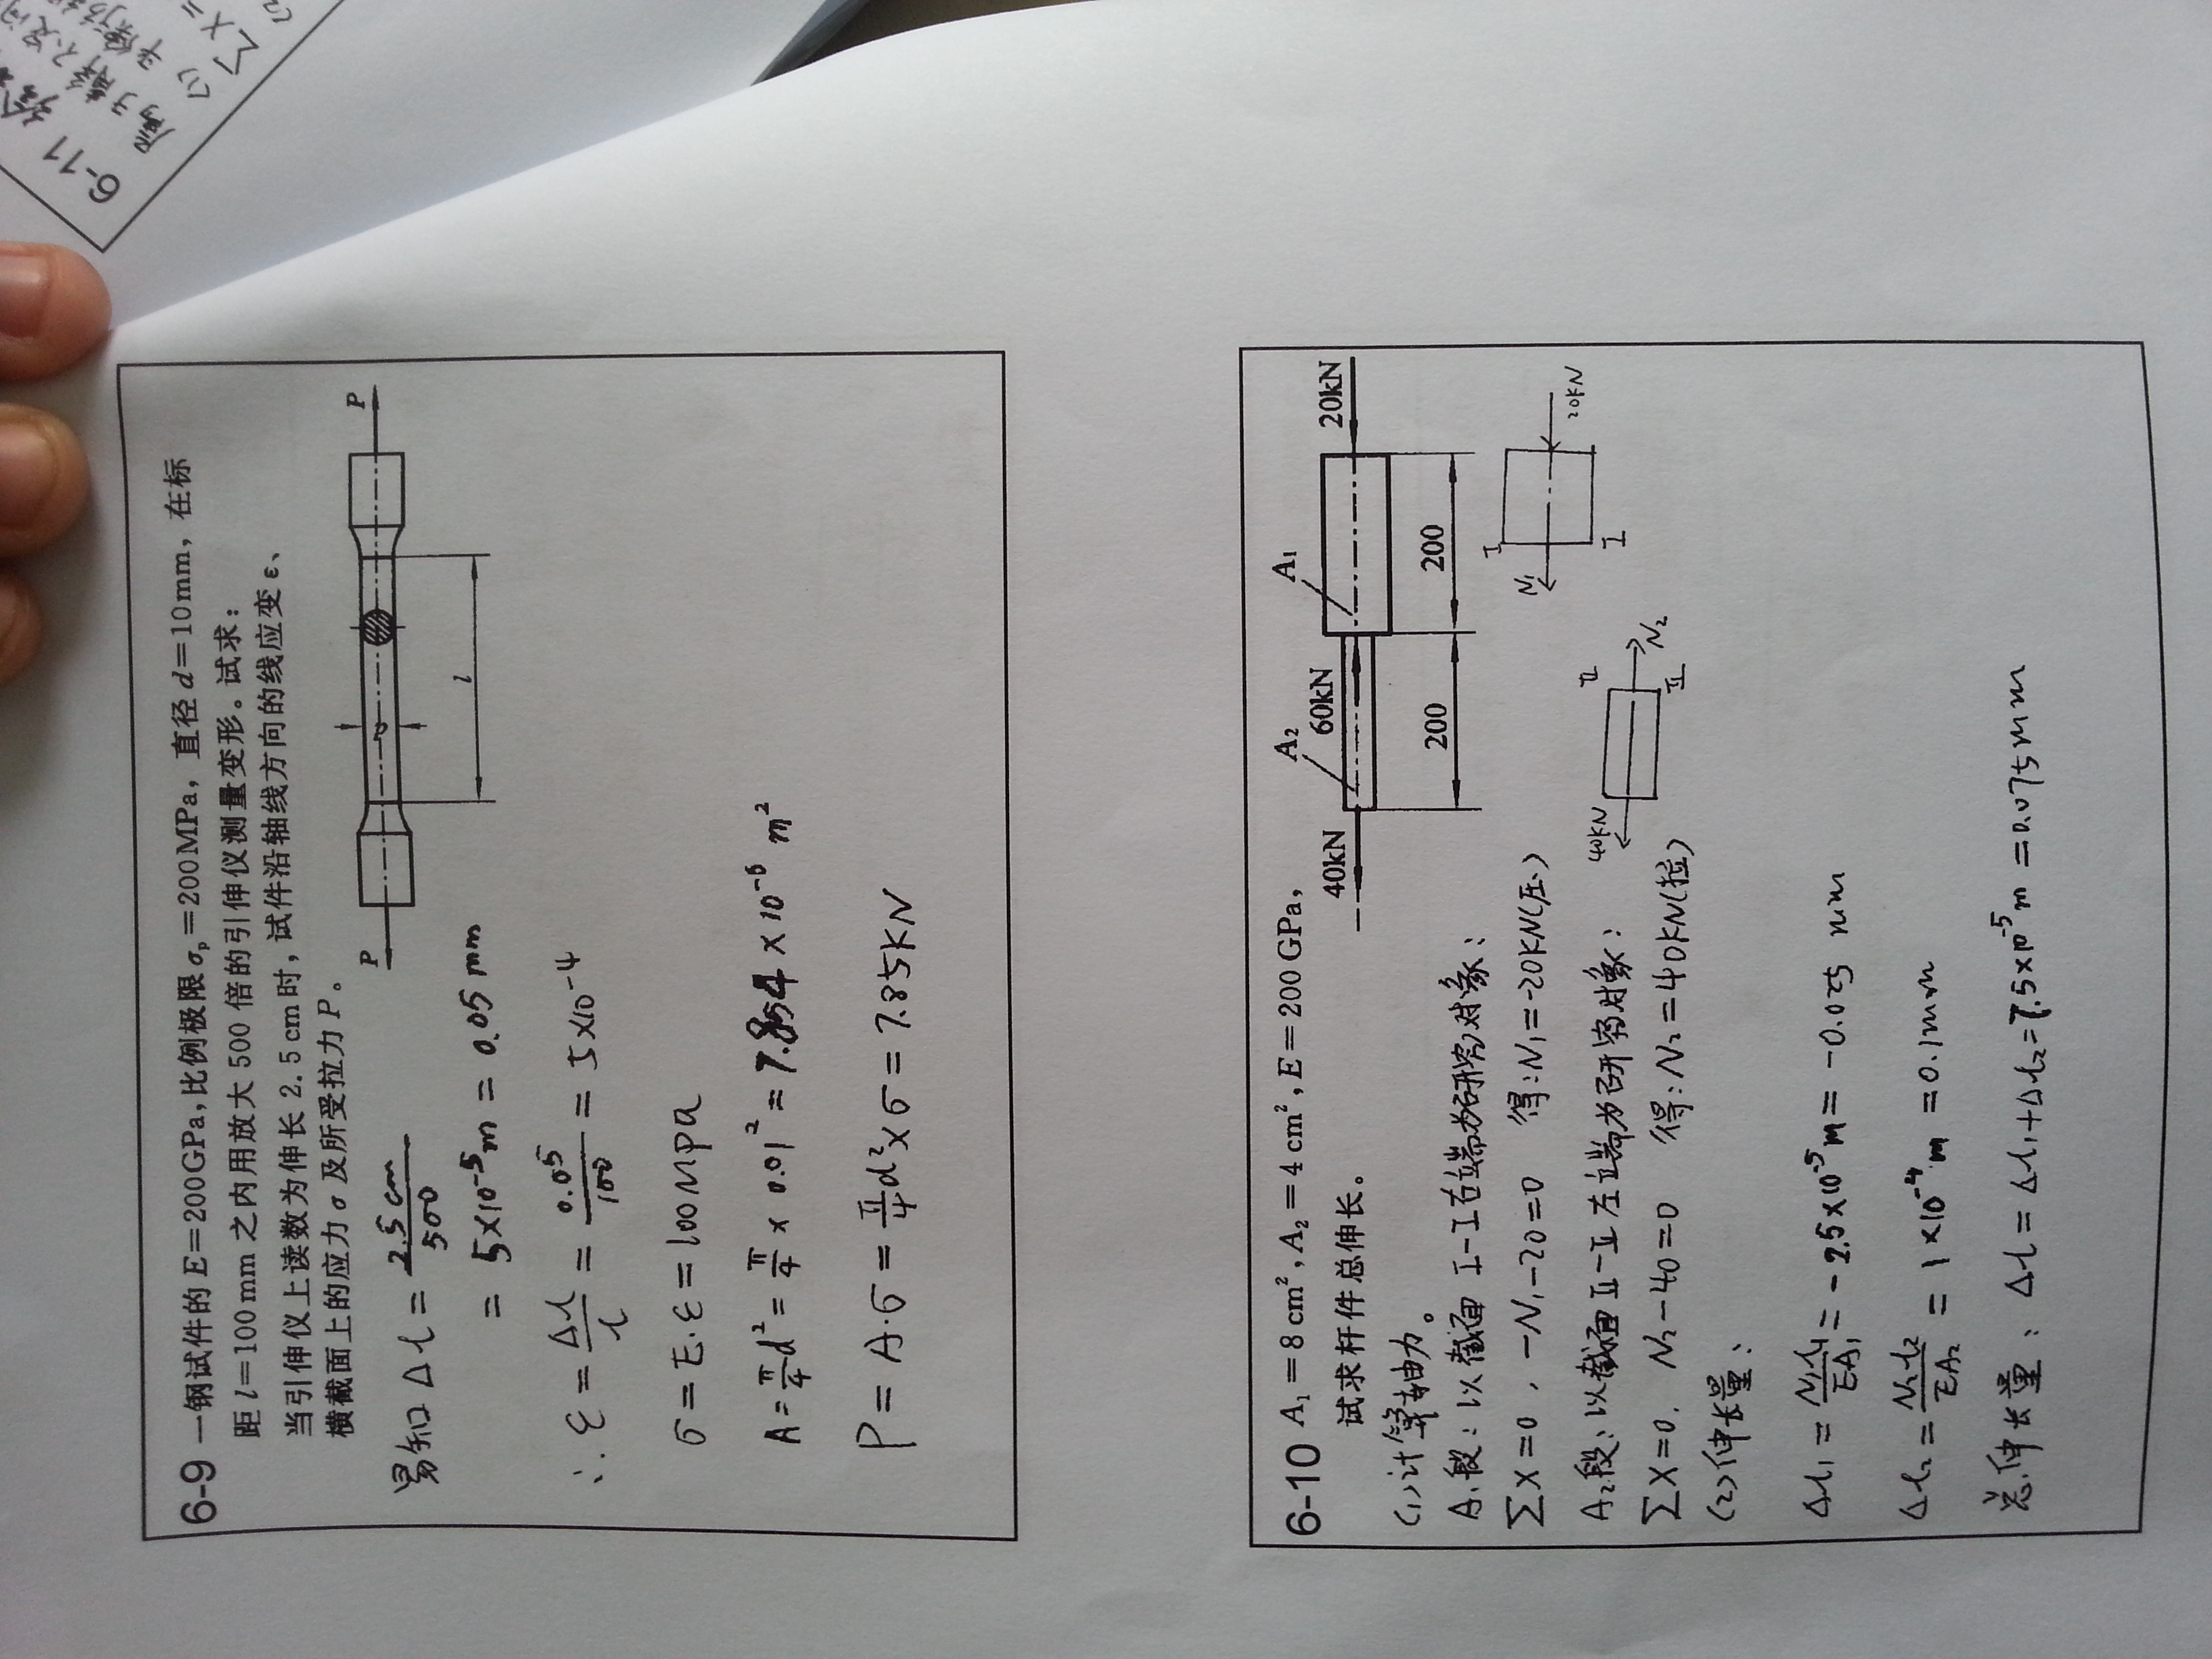 6-9 一钢试件的 E=200GPa,比例极限σp=200MPa, 直径 d=10mm, 在标
距 l=100mm 之内用放大 500 倍的引伸仪测量变形。试求：
当引伸仪上读数为伸长 2.5cm时, 试件沿轴线方向的线应变 ε、
横截面上的应力σ及所受拉力 P。
P
d
l
P
易知 Δl = 2.5cm/500
= 5×10⁻⁵m = 0.05mm
∴ ε = Δl/l = 0.05/100 = 5×10⁻⁴
σ = E·ε = 100MPa
A = π/4 d² = π/4 × 0.01² = 7.854×10⁻⁵ m²
P = A·σ = π/4 d²×σ = 7.85kN
6-10 A₁=8cm², A₂=4cm², E=200GPa,
试求杆件总伸长。
40kN
A₂
60kN
A₁
20kN
200
200
(1)计算轴力。
A₁段：以截面 I-I右端为研究对象：
ΣX=0, -N₁-20=0 得:N₁=-20kN(压)
N₁
I
I
20kN
A₂段：以截面 II-II左端为研究对象：
ΣX=0, N₂-40=0 得:N₂=40kN(拉)
40kN
II
II
N₂
(2)伸长量：
Δl₁ = N₁l₁/EA₁ = -2.5×10⁻⁵m = -0.025 mm
Δl₂ = N₂l₂/EA₂ = 1×10⁻⁴m = 0.1mm
总伸长量：Δl = Δl₁+Δl₂ = 7.5×10⁻⁵m = 0.075mm
6-11
(1)
ΣX=